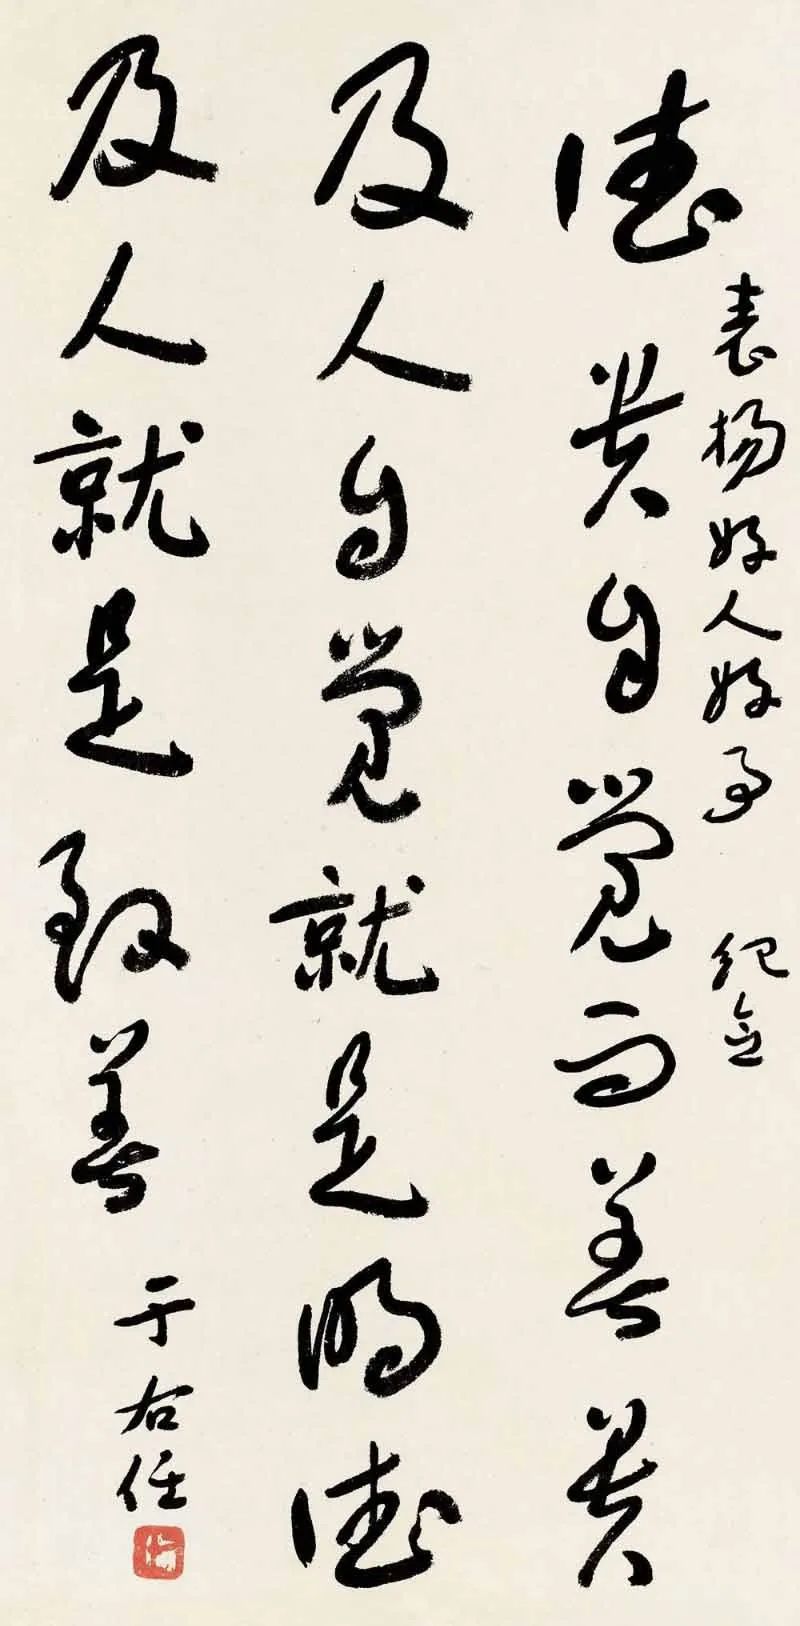 表扬好人好事 纪念
德贵自觉而善贵
及人自觉就是明德
及人就是致善
于右任